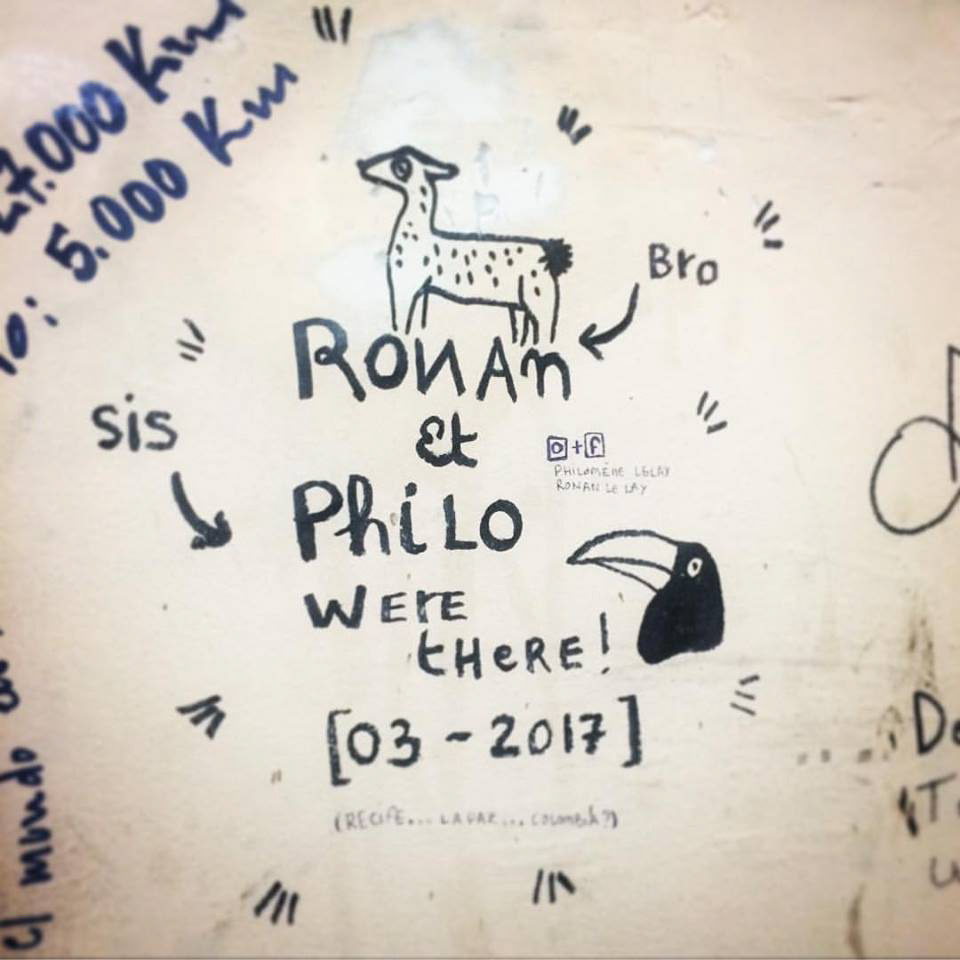 27.000 Km
10: 5.000 Km
Bro
RONAn
Sis
Et
+f
PHILOMÈNE LELAY
RONAN LE LAY
PhiLO
WErE
tHeRE!
[03-2017]
(RECIFE... LA PAZ... COLOMBIA?)
el mundo
De